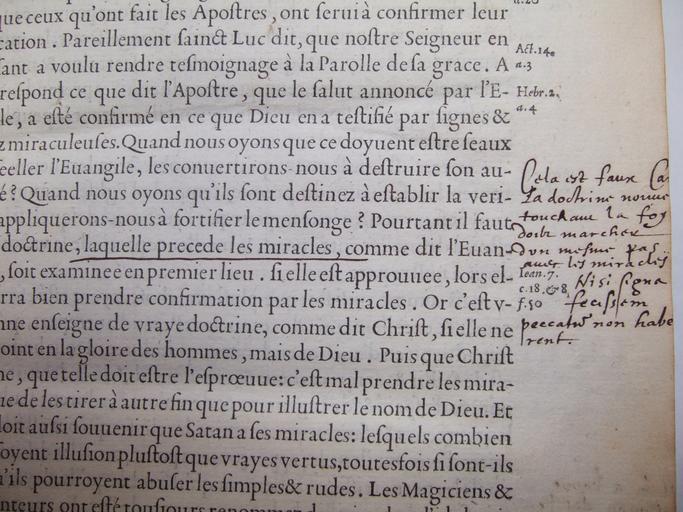 que ceux qu'ont fait les Apoſtres, ont ſerui à confirmer leur
cation. Pareillement ſainct Luc dit, que noſtre Seigneur en
ſant a voulu rendre teſmoignage à la Parolle de ſa grace. A
reſpond ce que dit l'Apoſtre, que le ſalut annoncé par l'E-
le, a eſté confirmé en ce que Dieu en a teſtifié par ſignes &
z miraculeuſes. Quand nous oyons que ce doyuent eſtre ſeaux
ſeeller l'Euangile, les conuertirons-nous à deſtruire ſon au-
é? Quand nous oyons qu'ils ſont deſtinez à eſtablir la veri-
appliquerons-nous à fortifier le menſonge? Pourtant il faut
doctrine, laquelle precede les miracles, comme dit l'Euan-
, ſoit examinee en premier lieu. ſi elle eſt approuuee, lors el-
rra bien prendre confirmation par les miracles. Or c'eſt v-
nne enſeigne de vraye doctrine, comme dit Chriſt, ſi elle ne
oint en la gloire des hommes, mais de Dieu. Puis que Chriſt
ne, que telle doit eſtre l'eſprœuue: c'eſt mal prendre les mira-
ue de les tirer à autre fin que pour illuſtrer le nom de Dieu. Et
doit auſſi ſouuenir que Satan a ſes miracles: leſquels combien
ſoyent illuſion pluſtoſt que vrayes vertus, toutesfois ſi ſont-ils
u'ils pourroyent abuſer les ſimples & rudes. Les Magiciens &
nteurs ont eſté touſiours renommez
a.20
Act.14.
a.3
Hebr.2.
a.4
Cela est faux Ca
la doctrine nouue
touchant la foy
doibt marcher
d'un mesme pas
auec les miracles
Iean.7.
c.18.&8.
f.50
Nisi signa
fecissem
peccatū non habe
rent.